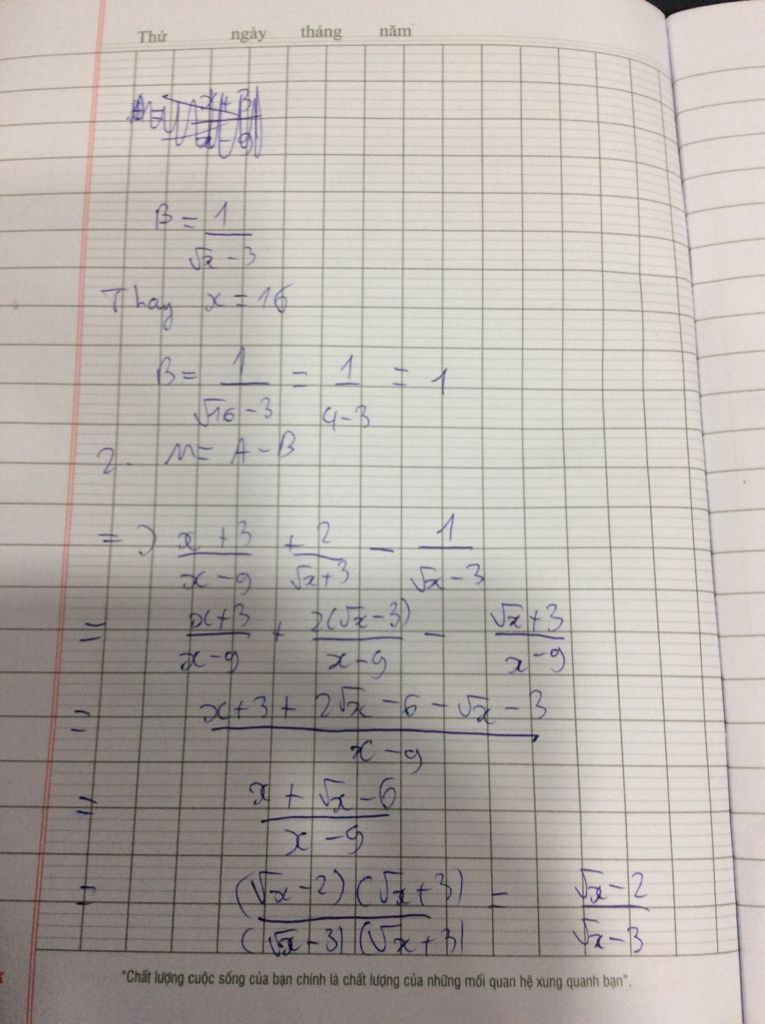 Thứ ngày tháng năm
B = 1/(√x - 3)
Thay x = 16
B = 1/(√16 - 3) = 1/(4 - 3) = 1
2. M = A - B
=> (x + 3)/(x - 9) + 2/(√x + 3) - 1/(√x - 3)
= (x + 3)/(x - 9) + 2(√x - 3)/(x - 9) - (√x + 3)/(x - 9)
= (x + 3 + 2√x - 6 - √x - 3)/(x - 9)
= (x + √x - 6)/(x - 9)
= (√x - 2)(√x + 3)/(√x - 3)(√x + 3) = (√x - 2)/(√x - 3)
"Chất lượng cuộc sống của bạn chính là chất lượng của những mối quan hệ xung quanh bạn".